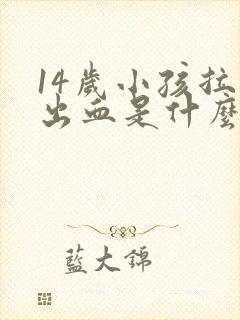 14歲小孩拉
出血是什麼
藍大錦